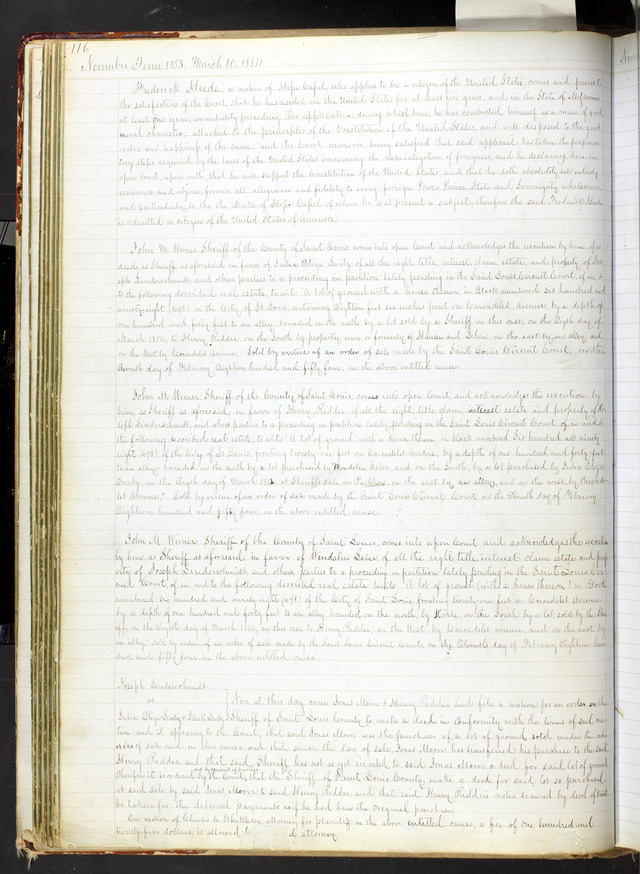 116
November Term 1853. March 10, 1854
Frederick Heede, a native of Hesse Cassel, who applies to be a citizen of the United States, comes and proves to
the satisfaction of the Court, that he has resided in the United States for at least five years, and in the State of Missouri
at least one year, immediately preceding this application, during which time, he has conducted himself as a man of good
moral character, attached to the principles of the Constitution of the United States, and well disposed to the good
order and happiness of the same and the Court moreover being satisfied that said applicant has taken the prepara
tory steps required by the laws of the United States concerning the naturalization of foreigners and he declaring here in
open Court, upon oath, that he will support the Constitution of the United States, and that he doth absolutely and entirely
renounce and abjure, forever, all allegiance and fidelity to every foreign Power, Prince, State and Sovereignty whatsoever
and particularly, to the Duke of Hesse Cassel of whom he was at present a subject, therefore the said Frederick Heede
is admitted a citizen of the United States of America.
John M. Wimer, Sheriff of the County of Saint Louis comes into open Court and acknowledges the execution by him of a
deed as Sheriff as aforesaid in favor of Julia Eliza Busby, of all the right, title, interest, claim, estate, and property of Jos
eph Linderschmidt, and others parties to a proceeding in partition lately pending in the Saint Louis Circuit Court, of in &
to the following described real estate, to wit: "A lot of ground with a house thereon, in Block numbered Six hundred and
ninety eight (698) in the City of St Louis, containing Eighteen feet six inches front on Carondelet Avenue, by a depth of
one hundred and forty feet to an alley, bounded on the north by a lot sold by a Sheriff in this case, on the Eigh day of
March 1854, to Henry Ridder, on the South by property now or formerly of Hansen and on the east by an alley, and
on the West by Carondelet Avenue. Sold by virtue of an order of sale made by the Saint Louis Circuit Court, on the
day of February Eighteen hundred and fifty four, in the above entitled cause.
John M Wimer, Sheriff of the County of Saint Louis, comes into open Court and acknowledges the execution by
him as Sheriff as aforesaid, in favor of Henry Ridder, of all the right, title, claim, interest estate and property of Jos
eph Linderschmidt, and others parties to a proceeding in partition lately pending in the Saint Louis Circuit Court, of in and to
the following described real estate, to wit: "A lot of ground, with a house thereon, in block numbered Six hundred and ninety
eight (698) of the City of St Louis, fronting twenty one feet on Carondelet Avenue, by a depth of one hundred and forty feet
to an alley bounded on the north by a lot purchased by Wendelin Leier, and on the South, by a lot purchased by Julia Eliza
Busby, on the Eigh day of March 1854 at Sheriffs sale in Partition, on the east by an alley, and on the west by Caronde
let Avenue". Sold by virtue of an order of sale made by the Saint Louis Circuit Court, on the day of February
Eighteen hundred and fifty four, in the above entitled cause.
John M Wimer, Sheriff of the County of Saint Louis, comes into open Court and acknowledges the execution
by him, as Sheriff as aforesaid in favor of Wendelin Leier, of all the right, title, interest claim estate and prop
erty of Joseph Linderschmidt and others, parties to a proceeding in partition lately pending in the Saint Louis Cir
cuit Court, of in and to the following described real estate to wit "A lot of ground (with a house thereon) in Block
numbered six hundred and ninety eight (698) of the City of Saint Louis fronting twenty one feet on Carondelet Avenue
by a depth of one hundred and forty feet to an alley bounded on the north, by on the South by a lot sold by the Sher
iff on the Eighth day of March 1854, in this case to Henry Ridder, on the West by Carondelet avenue and on the east by
an alley." Sold by virtue of an order of sale made by the Saint Louis Circuit Court, on the Eleventh day of February Eighteen hun
dred and fifty four, in the above entitled cause.
Joseph Linderschmidt
vs
Julia Eliza Busby &
Now at this day come Jonas Moore & Henry Ridder and file a motion for an order on the
Sheriff of Saint Louis County to make a deed in conformity with the terms of said mo
tion and it appearing to the Court, that said Jonas Moore was the purchaser of a lot of ground sold under the order
of sale made in this cause, and that since the day of sale, Jonas Moore has transferred his purchase to the said
Henry Ridder, and that said Sheriff has not as yet executed to said Jonas Moore a deed for said lot of ground
therefore it is ordered by the Court, that the Sheriff of Saint Louis County, make a deed for said lot so purchased
at said sale by said Jonas Moore to said Henry Ridder and that said Henry Ridders notes secured by deed of trust
be taken for the deferred payments as if he had been the original purchaser.
On motion of Charles C. Whittlesey, attorney for plaintiff in the above entitled cause, a fee of one hundred and
twenty five dollars, is allowed attorney.